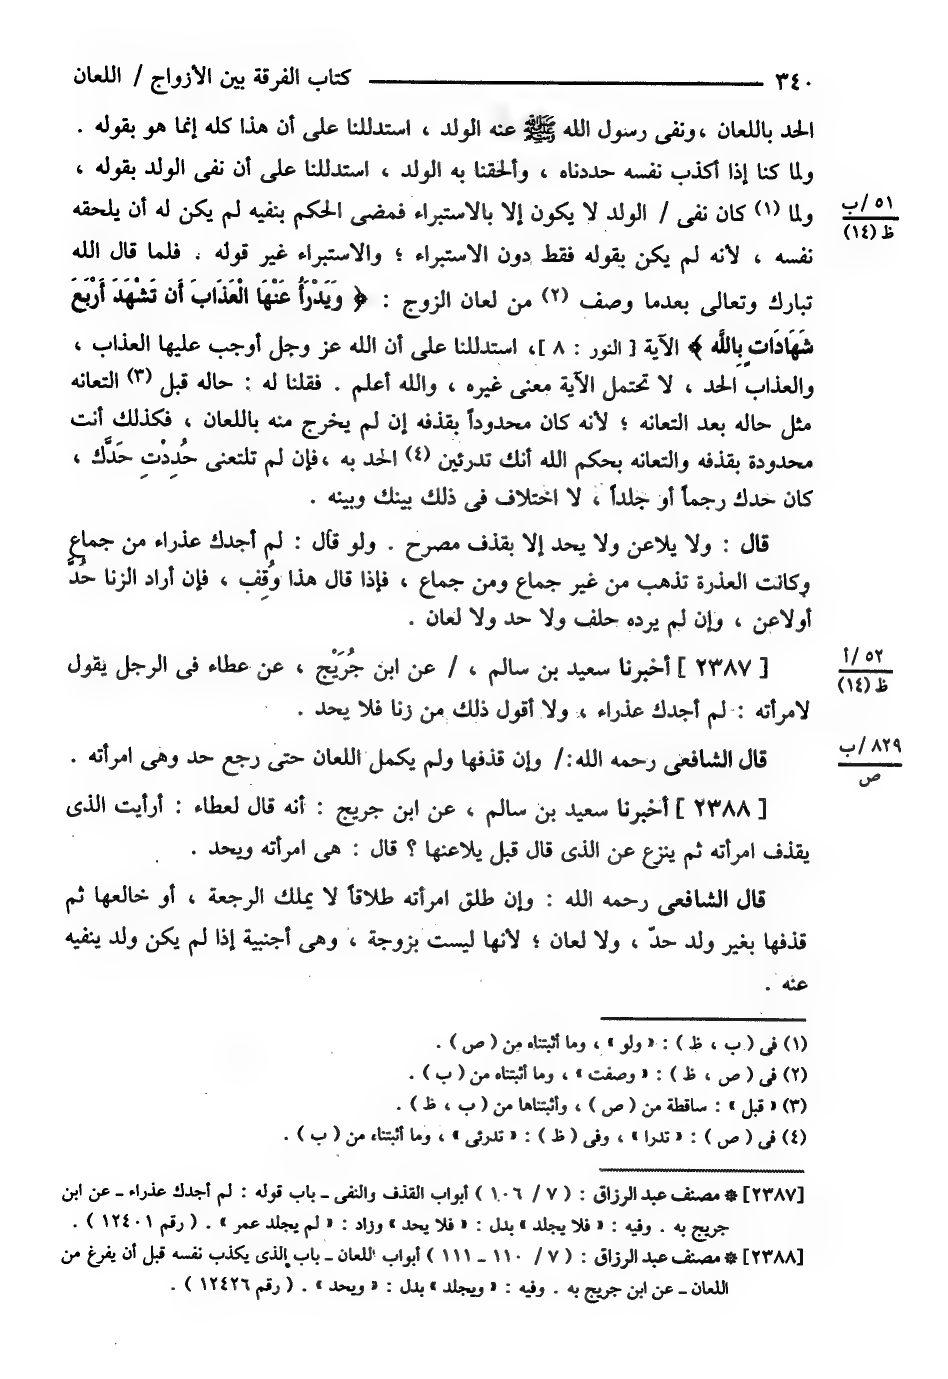 ٣٤٠ كتاب الفرقة بين الأزواج / اللعان
الحد باللعان ، ونفى رسول الله ﷺ عنه الولد ، استدللنا على أن هذا كله إنما هو بقوله .
ولما كنا إذا أكذب نفسه حددناه ، وألحقنا به الولد ، استدللنا على أن نفى الولد بقوله ،
ولما (١) كان نفى / الولد لا يكون إلا بالاستبراء فمضى الحكم بنفيه لم يكن له أن يلحقه
٥١ /ب
ظ (١٤)
نفسه ، لأنه لم يكن بقوله فقط دون الاستبراء ؛ والاستبراء غير قوله . فلما قال الله
تبارك وتعالى بعدما وصف (٢) من لعان الزوج : ﴿ وَيَدْرَأُ عَنْهَا الْعَذَابَ أَن تَشْهَدَ أَرْبَعَ
شَهَادَاتٍ بِاللَّه ﴾ الآية [ النور : ٨ ]، استدللنا على أن الله عز وجل أوجب عليها العذاب ،
والعذاب الحد ، لا تحتمل الآية معنى غيره ، والله أعلم . فقلنا له : حاله قبل (٣) التعانه
مثل حاله بعد التعانه ؛ لأنه كان محدوداً بقذفه إن لم يخرج منه باللعان ، فكذلك أنت
محدودة بقذفه والتعانه بحكم الله أنك تدرئين (٤) الحد به ،فإن لم تلتعنى حُدِدْتِ حَدَّك ،
كان حدك رجماً أو جلداً ، لا اختلاف فى ذلك بينك وبينه .
قال : ولا يلاعن ولا يحد إلا بقذف مصرح . ولو قال : لم أجدك عذراء من جماع
وكانت العذرة تذهب من غير جماع ومن جماع ، فإذا قال هذا وُقِف ، فإن أراد الزنا حُدَّ
أولاعن ، وإن لم يرده حلف ولا حد ولا لعان .
[ ٢٣٨٧ ] أخبرنا سعيد بن سالم ، / عن ابن جُرَيْج ، عن عطاء فى الرجل يقول
٥٢ /أ
ظ (١٤)
لامرأته : لم أجدك عذراء ، ولا أقول ذلك من زنا فلا يحد .
قال الشافعى رحمه الله:/ وإن قذفها ولم يكمل اللعان حتى رجع حد وهى امرأته .
٨٢٩ /ب
ص
[ ٢٣٨٨ ] أخبرنا سعيد بن سالم ، عن ابن جريج : أنه قال لعطاء : أرأيت الذى
يقذف امرأته ثم ينزع عن الذى قال قبل يلاعنها ؟ قال : هى امرأته ويحد .
قال الشافعى رحمه الله : وإن طلق امرأته طلاقاً لا يملك الرجعة ، أو خالعها ثم
قذفها بغير ولد حدّ ، ولا لعان ؛ لأنها ليست بزوجة ، وهى أجنبية إذا لم يكن ولد ينفيه
عنه .
(١) فى ( ب ، ظ ) : « ولو » ، وما أثبتناه من ( ص ) .
(٢) فى ( ص ، ظ ) : « وصفت » ، وما أثبتناه من ( ب ) .
(٣) « قبل » : ساقطة من ( ص ) ، وأثبتناها من ( ب ، ظ ) .
(٤) فى ( ص ) : « تدرا » ، وفى ( ظ ) : « تدرئى » ، وما أثبتناه من ( ب ) .
[٢٣٨٧] * مصنف عبد الرزاق : ( ٧ / ١٠٦ ) أبواب القذف والنفى ـ باب قوله : لم أجدك عذراء ـ عن ابن
جريج به . وفيه : « فلا يجلد » بدل : « فلا يحد » وزاد : « لم يجلد عمر » . ( رقم ١٢٤٠١ ) .
[٢٣٨٨] * مصنف عبد الرزاق : ( ٧ / ١١٠ ـ ١١١ ) أبواب اللعان ـ باب الذى يكذب نفسه قبل أن يفرغ من
اللعان ـ عن ابن جريج به . وفيه : « ويجلد » بدل : « ويحد » . ( رقم ١٢٤٢٦ ) .